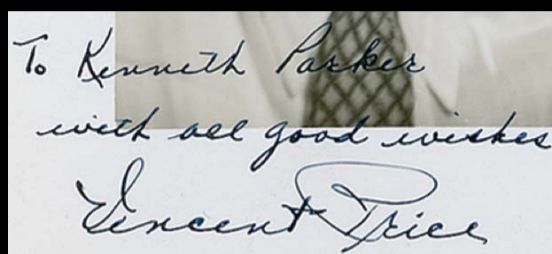 To Kenneth Parker
with all good wishes
Vincent Price